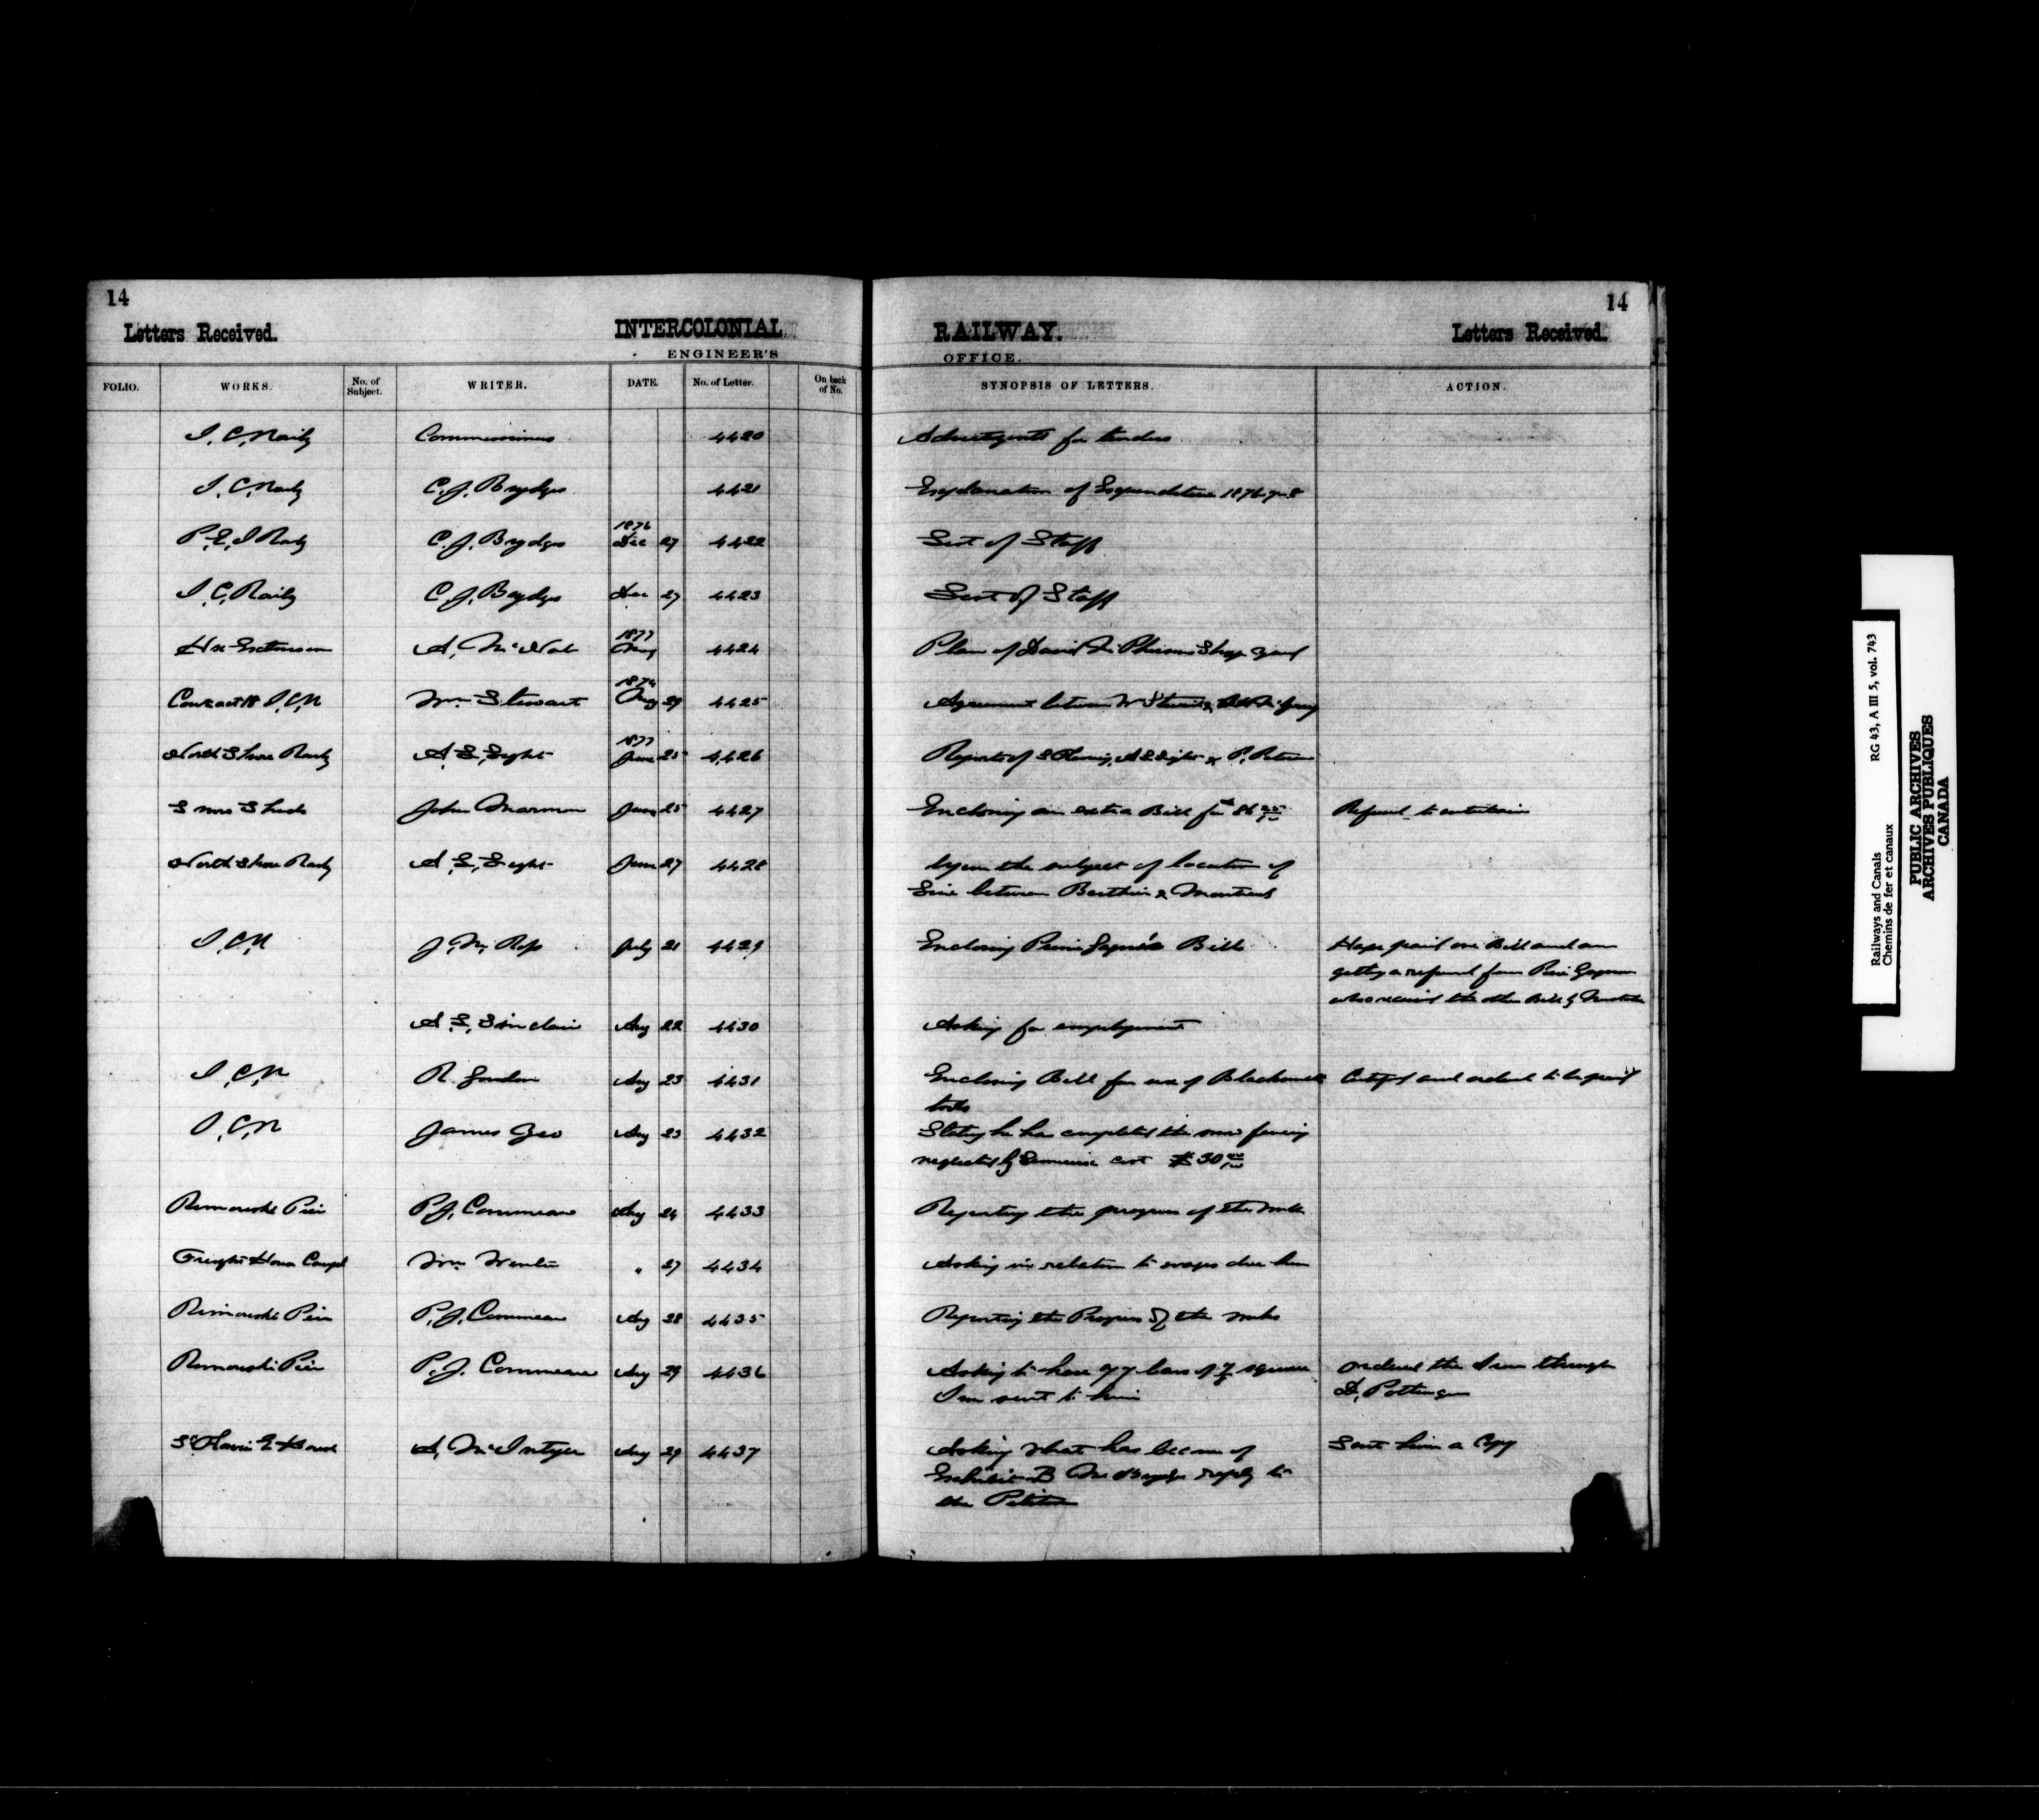 14
14
Letters Received.
INTERCOLONIAL
RAILWAY.
Letters Received.
ENGINEER'S
OFFICE.
FOLIO. WORKS. No. of Subject. WRITER. DATE. No. of Letter. On back of No. SYNOPSIS OF LETTERS. ACTION.
I. C. Raily Commissioners 4420 for tenders
I. C. Raily C. J. Brydges 4421 Explanation of Expenditure 1876-7-8
P. E. I Raily C. J. Brydges 1876 Dec 27 4422 List of Staff
I. C. Raily C. J. Brydges Dec 27 4423 List of Staff
Hx Extension A. McNab 1877 4424 Plan of David Ship yard
Contract 18 I.C.R Wm Stewart 1874 Aug 29 4425 Agreement between W Stewart &
North Shore Raily A. L. Light 1877 June 25 4426 Reports of S Fleming, A L Light & P. Peterson
Snow Sheds John June 25 4427 Enclosing an extra Bill for 86 Refused to entertain
North Shore Raily A. L. Light June 27 4428 Upon the subject of location of
Line between Berthier & Montreal
I.C.R J. M. Ross July 21 4429 Enclosing Bills Have paid one Bill and am
getting a refund from
who received the other Bill by mistake
A. L. Sinclair Aug 22 4430 Asking for employment
I.C.R R. Aug 23 4431 Enclosing Bill for use of Blacksmith Certified and ordered to be paid
tools
I.C.R James Geo Aug 23 4432 Stating he has completed the snow fencing
neglected by cost $30
Rimouski Pier P. J. Commeau Aug 24 4433 Reporting the progress of the works
Freight House Wm " 27 4434 Asking in relation to wages due him
Rimouski Pier P. J. Commeau Aug 28 4435 Reporting the Progress of the works
Rimouski Pier P. J. Commeau Aug 29 4436 Asking to have bars of square Ordered the Iron through
Iron sent to him D. Pottinger
St Flavie E. House A. McIntyre Aug 29 4437 Asking what has become of Sent him a Copy
Exhibit B Mr Brydges reply to
the Petition
Railways and Canals RG 43, A III 5, vol. 743
Chemins de fer et canaux
PUBLIC ARCHIVES
ARCHIVES PUBLIQUES
CANADA